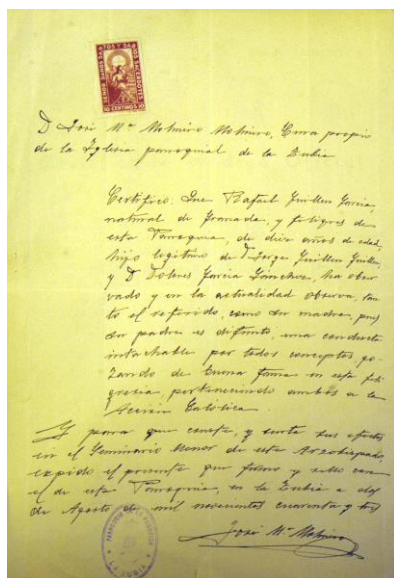 SEÑOR DANOS SA
TOS Y SA
OS SACERDOTES
10 CENTIMOS 10
D José Mª Molinero Molinero, Cura propio
de la Iglesia parroquial de la Zubia
Certifico: Que Rafael Guillen Garcia,
natural de Granada, y feligres de
esta Parroquia, de diez años de edad,
hijo legitimo de D Jorge Guillen Guillen,
y Dª Dolores Garcia Sanchez, ha obser
vado y en la actualidad observa, tan
to el referido, como su madre, pues
su padre es difunto, una conducta
intachable por todos conceptos go-
zando de buena fama en esta feli
gresia, perteneciendo ambos a la
Acción Católica.
Y para que conste, y surta sus efectos
en el Seminario Menor de este Arzobispado,
expido el presente que firmo y sello con
el de esta Parroquia, en la Zubia a dos
de Agosto de mil novecientos cuarenta y tres
José Mª Molinero